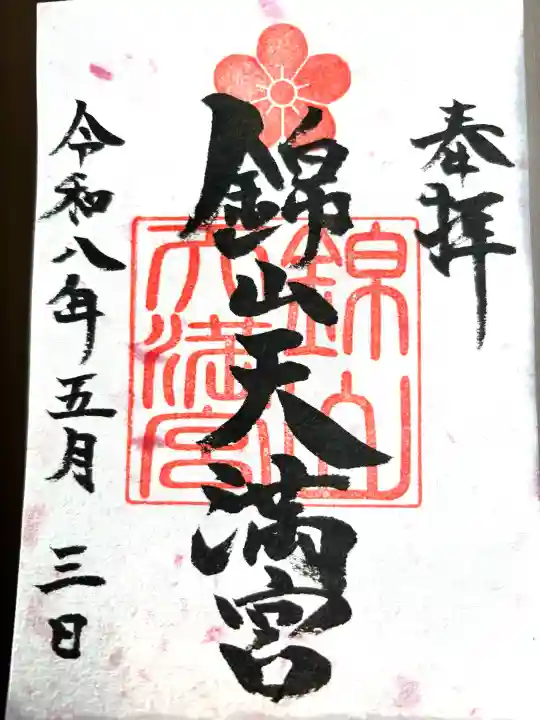 奉拝
錦山天満宮
錦山天満宮
令和八年五月三日